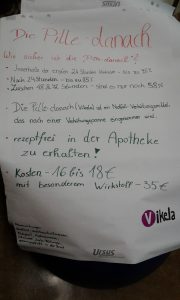 Die Pille-danach
Wie sicher ist die "Pille-danach"?
- Innerhalb der ersten 24 Stunden bis zu 95%
- Nach 24 Stunden - bis zu 85%
- Zwischen 48 & 72 Stunden sind es nur noch 58%
- Die Pille danach ist ein Notfall-Verhütungsmittel,
das nach einer Verhütungspanne eingenommen wird.
- rezeptfrei in der Apotheke
zu erhalten!
- Kosten - 16 bis 18 €
mit besonderem Wirkstoff - 35 €
Vikela
URSUS